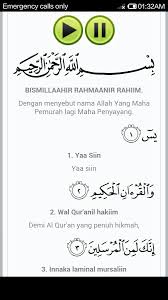 Emergency calls only 01:32AM
بِسْمِ اللَّهِ الرَّحْمَٰنِ الرَّحِيمِ
BISMILLAAHIR RAHMAANIR RAHIIM,
Dengan menyebut nama Allah Yang Maha
Pemurah lagi Maha Penyayang.
يسٓ ﴿١﴾
1. Yaa Siin
Yaa siin
وَالْقُرْآنِ الْحَكِيمِ ﴿٢﴾
2. Wal Qur'anil hakiim
Demi Al Qur'an yang penuh hikmah,
إِنَّكَ لَمِنَ الْمُرْسَلِينَ ﴿٣﴾
3. Innaka laminal mursaliin